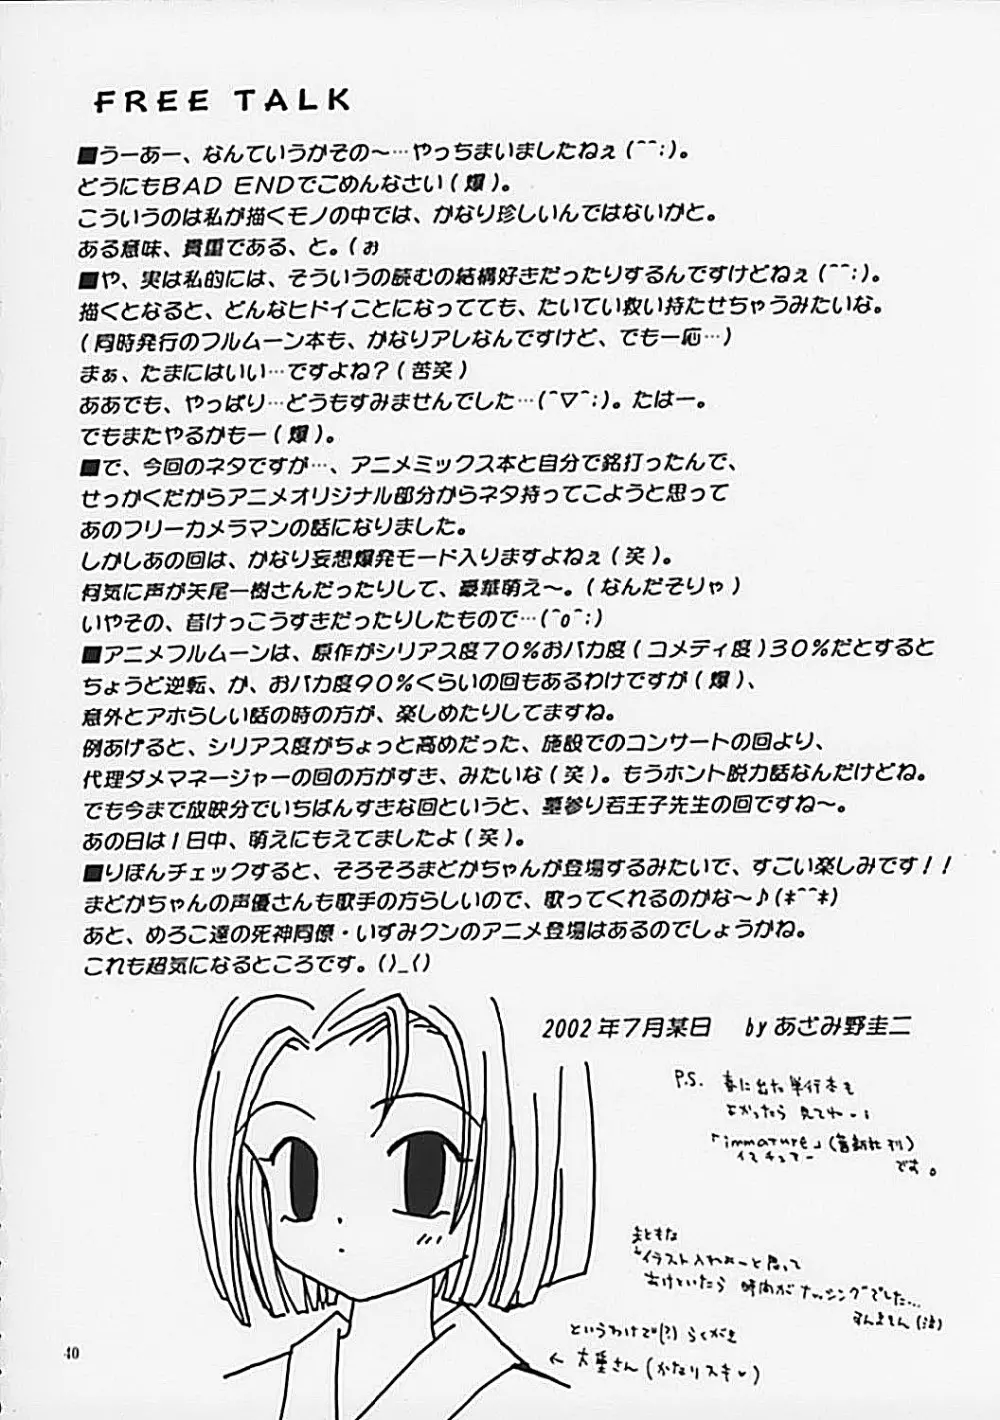 FREE TALK
■うーあー、なんていうかその～…やっちまいましたねぇ(^^;)。
どうにもBAD ENDでごめんなさい(爆)。
こういうのは私が描くモノの中では、かなり珍しいんではないかと。
ある意味、貴重である、と。(ぉ
■や、実は私的には、そういうの読むの結構好きだったりするんですけどねぇ(^^;)。
描くとなると、どんなヒドイことになってても、たいてい救い持たせちゃうみたいな。
(同時発行のフルムーン本も、かなりアレなんですけど、でも一応…)
まぁ、たまにはいい…ですよね?(苦笑)
ああでも、やっぱり…どうもすみませんでした…(^▽^;)。たはー。
でもまたやるかもー(爆)。
■で、今回のネタですが…、アニメミックス本と自分で銘打ったんで、
せっかくだからアニメオリジナル部分からネタ持ってこようと思って
あのフリーカメラマンの話になりました。
しかしあの回は、かなり妄想爆発モード入りますよねぇ(笑)。
何気に声が矢尾一樹さんだったりして、豪華萌え～。(なんだそりゃ)
いやその、昔けっこうすきだったりしたもので…(^o^;)
■アニメフルムーンは、原作がシリアス度70%おバカ度(コメディ度)30%だとすると
ちょうど逆転、か、おバカ度90%くらいの回もあるわけですが(爆)、
意外とアホらしい話の時の方が、楽しめたりしてますね。
例あげると、シリアス度がちょっと高めだった、施設でのコンサートの回より、
代理ダメマネージャーの回の方がすき、みたいな(笑)。もうホント脱力話なんだけどね。
でも今まで放映分でいちばんすきな回というと、墓参り若王子先生の回ですね～。
あの日は1日中、萌えにもえてましたよ(笑)。
■りぼんチェックすると、そろそろまどかちゃんが登場するみたいで、すごい楽しみです!!
まどかちゃんの声優さんも歌手の方らしいので、歌ってくれるのかな～♪(*^^*)
あと、めろこ達の死神同僚・いずみクンのアニメ登場はあるのでしょうかね。
これも超気になるところです。()_()
2002年7月某日 by あざみ野圭二
P.S. 春に出た単行本も
よかったら 見てねー!
「immature」(喜新社刊)
イマチュアー です。
まともな
イラスト入れよーと思って
あけといたら 時間がナッシングでした…
すんません(泣)
というわけで(?) らくがき
← 大重さん(かなりスキ♥)
40